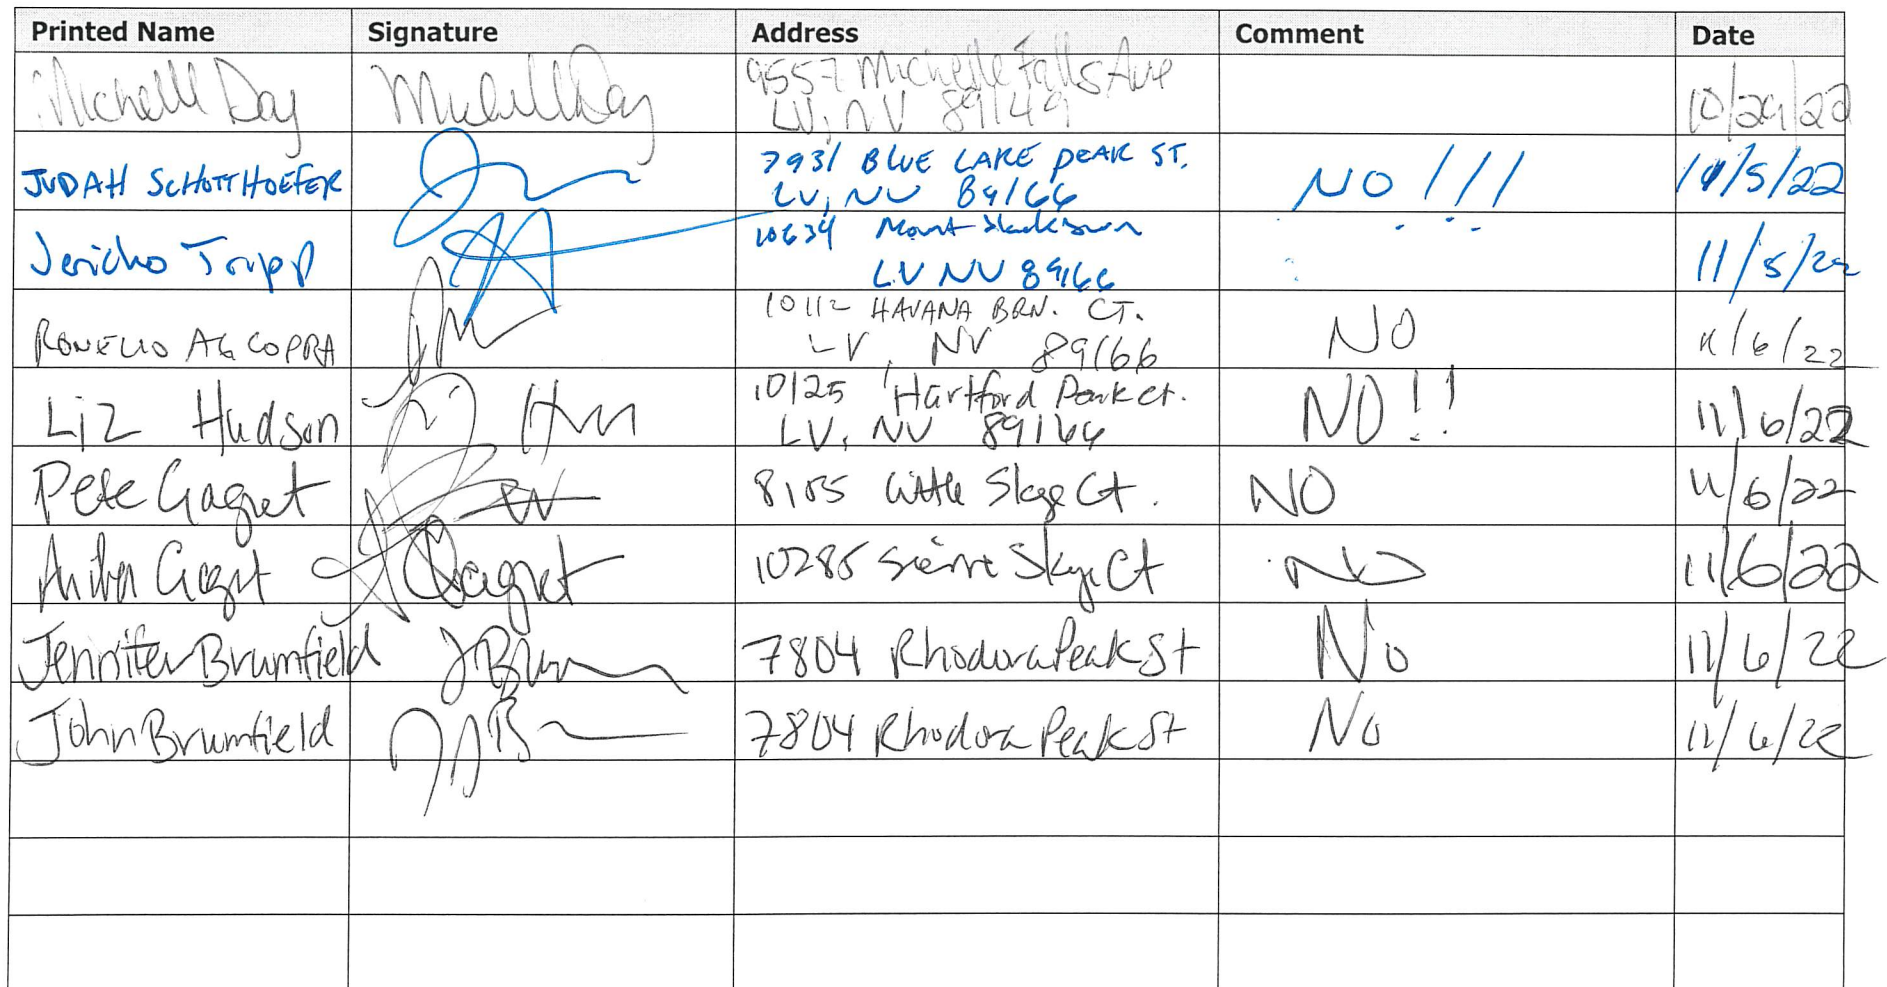 Printed Name Signature Address Comment Date
Michelle Day Michelle Day 9557 Michelle Falls Ave
LV, NV 89149 10/29/22
JUDAH SCHOTTHOEFER 7931 BLUE LAKE PEAK ST.
LV, NV 89166 NO!!! 11/5/22
Jericho Tripp 10634 Mount
LV NV 89166 11/5/22
AGCOPRA 10112 HAVANA BRN. CT.
LV, NV 89166 NO 11/6/22
Liz Hudson 10125 Hartford Peak ct.
LV, NV 89166 NO!! 11/6/22
Pete Gagnet 8105 Little Skye Ct. NO 11/6/22
Gagnet Gagnet 10285 Skye Ct NO 11/6/22
Jennifer Brumfield 7804 Rhodora Peak St No 11/6/22
John Brumfield 7804 Rhodora Peak St No 11/6/22